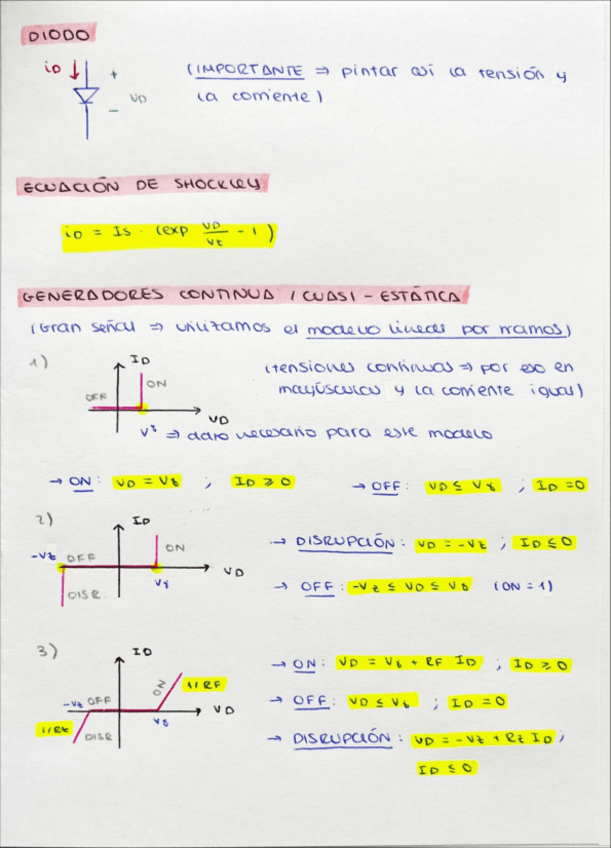 DIODO
iD + - VD
(IMPORTANTE ⇒ pintar así la tensión y
la corriente)
ECUACIÓN DE SHOCKLEY
iD = Is · (exp VD/Vt - 1)
GENERADORES CONTINUA / CUASI-ESTÁTICA
(Gran señal ⇒ utilizamos el modelo lineal por tramos)
1) ID ON OFF VD
(tensiones continuas ⇒ por eso en
mayúsculas y la corriente igual)
Vγ ⇒ dato necesario para este modelo
→ ON: VD = Vγ ; ID ≥ 0 → OFF: VD ≤ Vγ ; ID = 0
2) ID ON -VZ OFF VD DISR. Vγ
→ DISRUPCIÓN: VD = -VZ ; ID ≤ 0
→ OFF: -VZ ≤ VD ≤ Vγ (ON = 1)
3) ID ON 1/RF -VZ OFF VD Vγ 1/RZ DISR
→ ON: VD = Vγ + RF ID ; ID ≥ 0
→ OFF: VD ≤ Vγ ; ID = 0
→ DISRUPCIÓN: VD = -VZ + RZ ID ;
ID ≤ 0